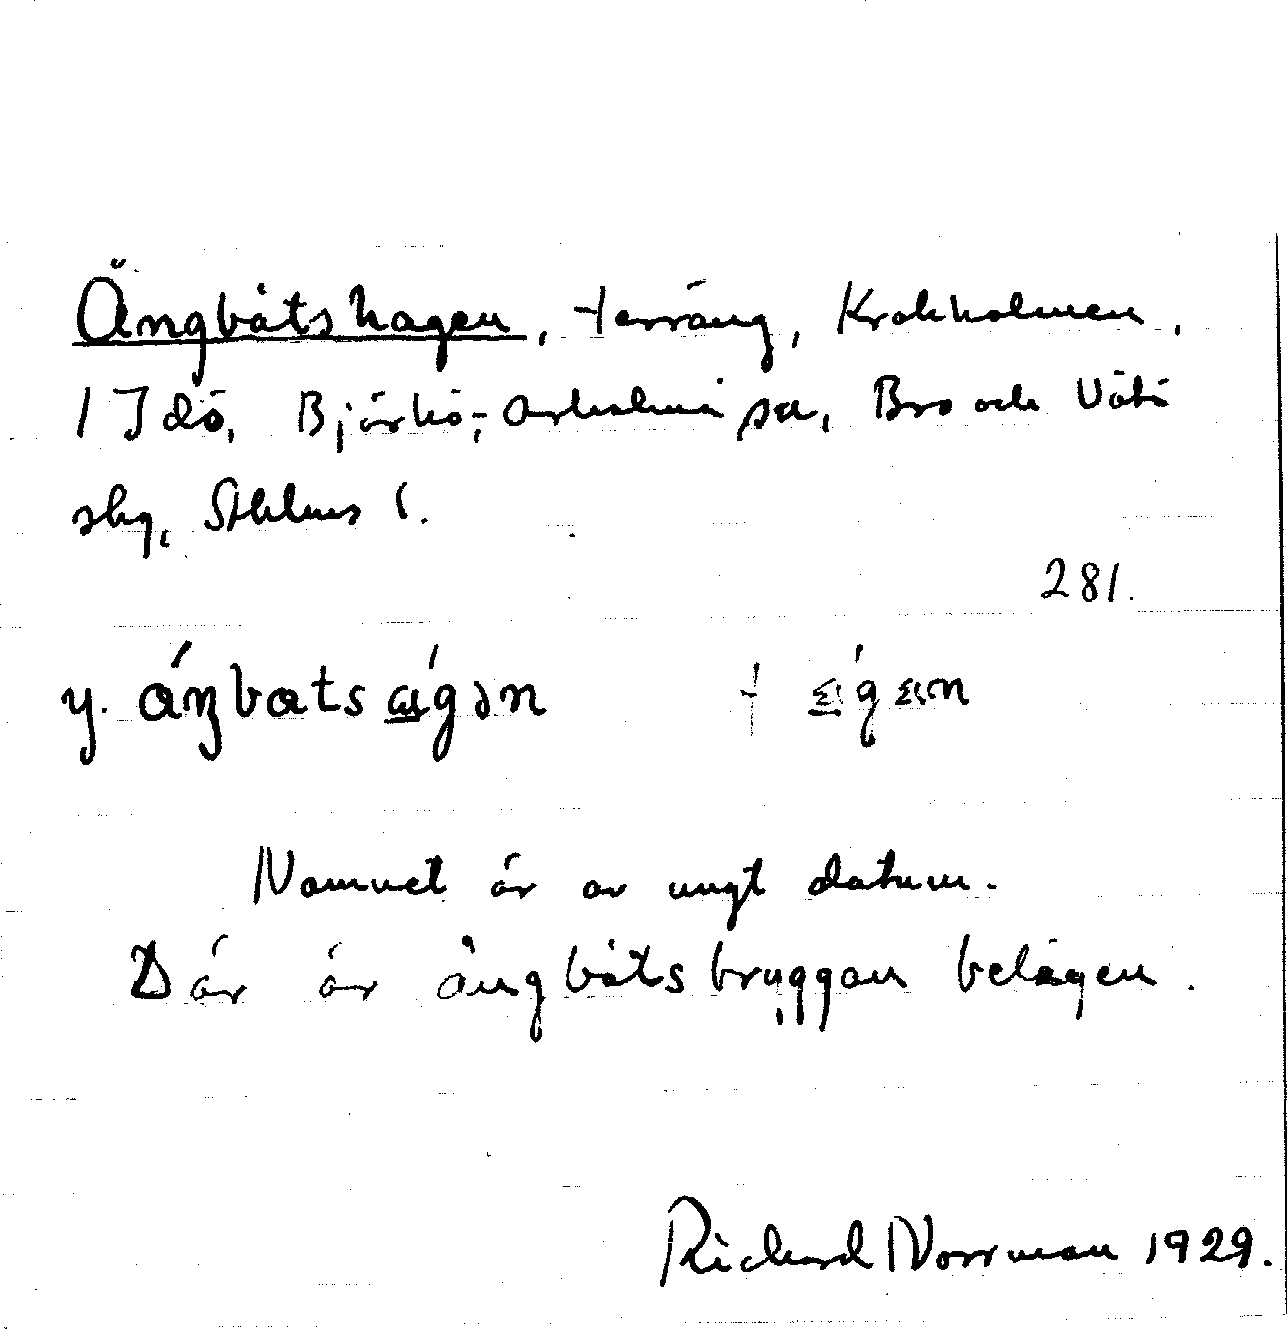 Ångbåtshagen, terräng, Krokholmen,
1 Idö, Björkö-Arholma sn, Bro och Vätö
skg, Sthlms l.
281.
y. áŋbatsɑ́gən † ágan
Namnet är av ungt datum.
Där är ångbåtsbryggan belägen.
Richard Norrman 1929.